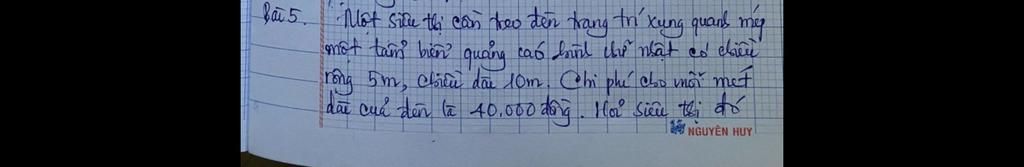 Bài 5. Một siêu thị cần treo đèn trang trí xung quanh mép
một tấm biển quảng cáo hình chữ nhật có chiều
rộng 5m, chiều dài 10m. Chi phí cho mỗi mét
dài của đèn là 40.000 đồng. Hỏi siêu thị đó
NGUYÊN HUY